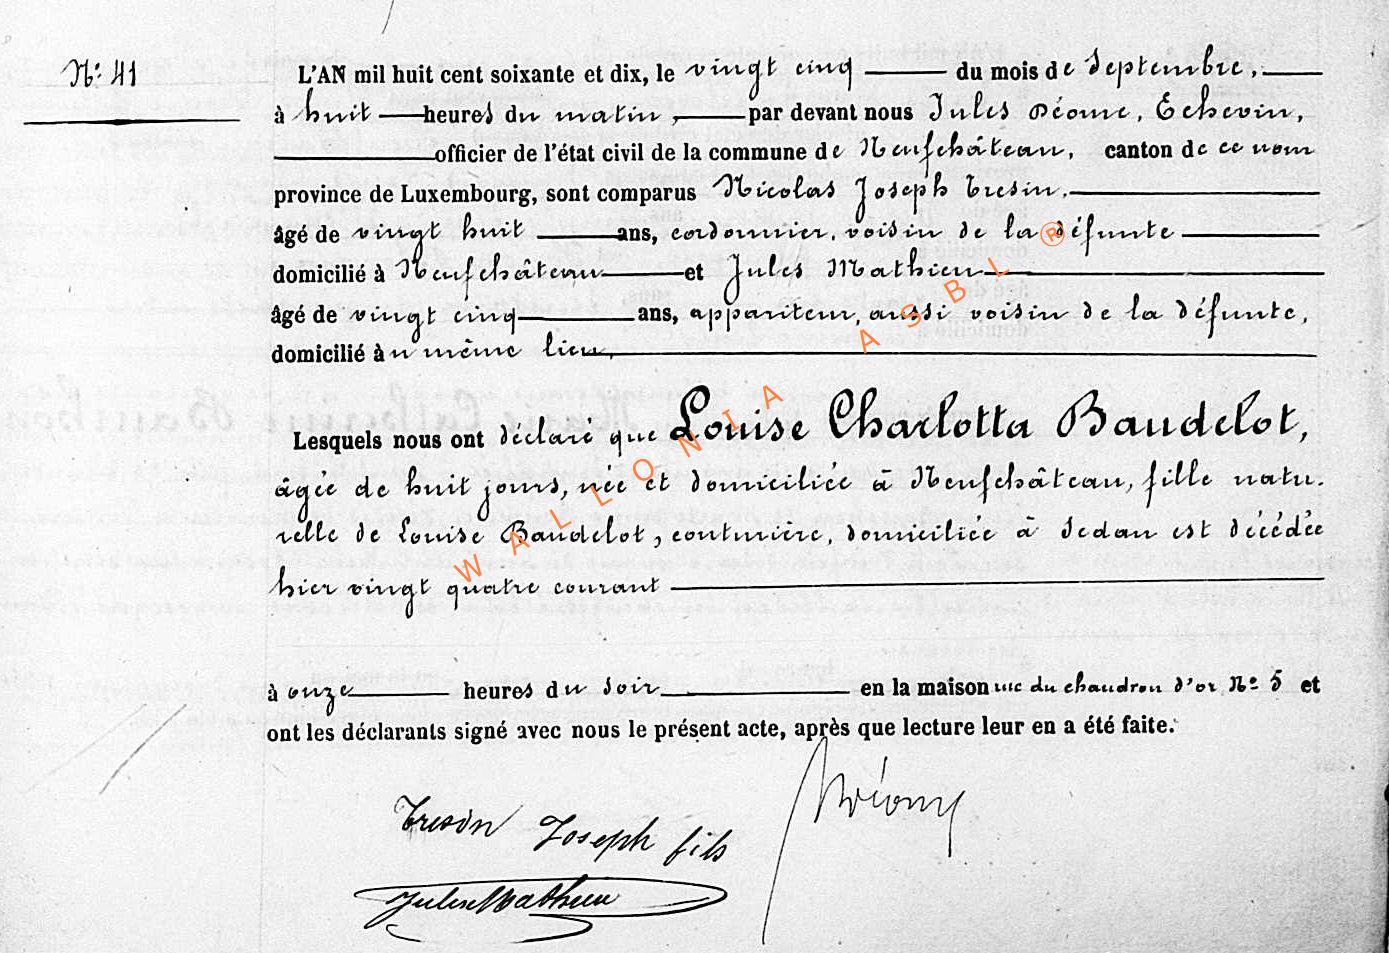 N.º 41
L'AN mil huit cent soixante et dix, le vingt cinq du mois de septembre,
à huit heures du matin, par devant nous Jules Déome, Echevin,
officier de l'état civil de la commune de Neufchâteau, canton de ce nom
province de Luxembourg, sont comparus Nicolas Joseph Tresin,
âgé de vingt huit ans, cordonnier, voisin de la défunte
domicilié à Neufchâteau et Jules Mathieu
âgé de vingt cinq ans, appariteur, aussi voisin de la défunte,
domicilié au même lieu,
Lesquels nous ont déclaré que Louise Charlotta Baudelot,
âgée de huit jours, née et domiciliée à Neufchâteau, fille natu-
relle de Louise Baudelot, couturière, domiciliée à Sedan est décédée
hier vingt quatre courant
à onze heures du soir en la maison rue du chaudron d'or Nº 5 et
ont les déclarants signé avec nous le présent acte, après que lecture leur en a été faite.
Tresin Joseph fils
JulesMathieu
WALLONIA ASBL ®